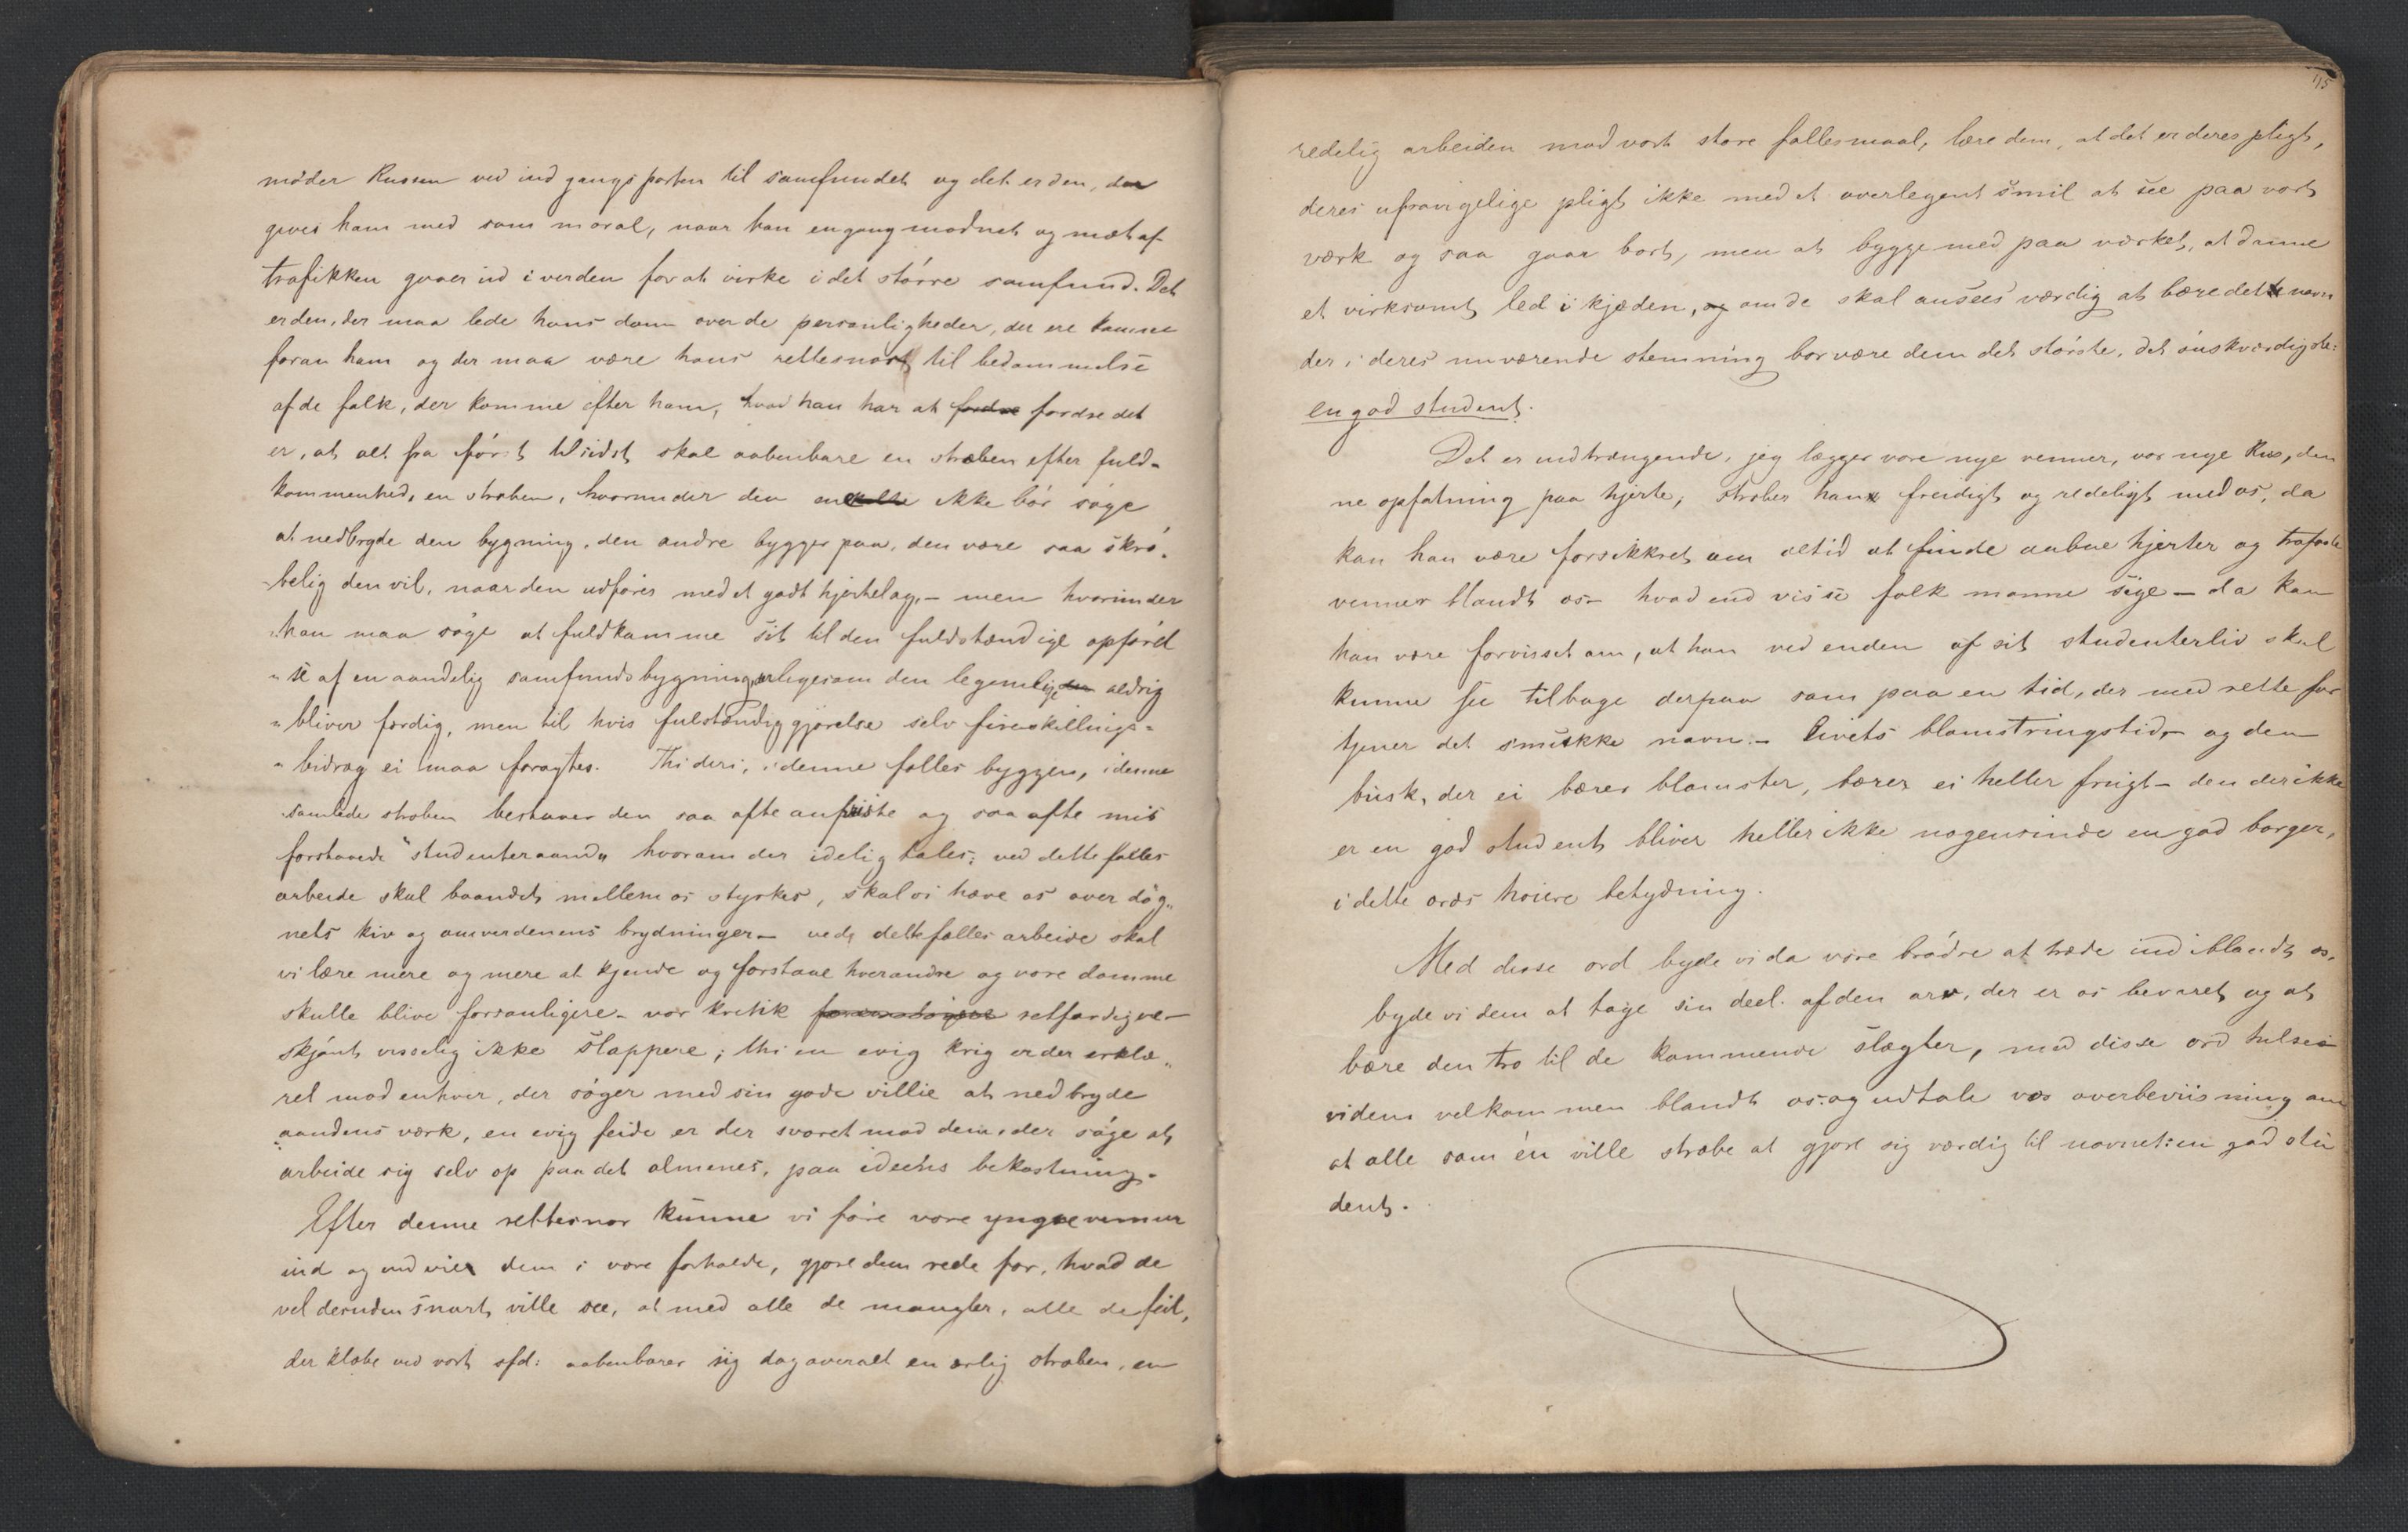 møder Russen ved indgangsporten til samfundet og det er den, der
gives ham med som moral, naar han engang modnet og mæt af
trafikken gaaer ud i verden for at virke i det større samfund. Det
er den, der maa lede hans dom over de personligheder, der ere komne
foran ham og der maa være hans rettesnor til bedømmelse
af de folk, der komme efter ham, hvad han har at fordre fordre det
er, at alt fra først til sidst skal aabenbare en stræben efter fuld-
kommenhed, en stræben, hvorunder den enkelte ikke bør søge
at nedbryde den bygning, den andre bygger paa, den være saa skrø-
belig den vil, naar den udføres med et godt hjertelag, – men hvorunder
han maa søge at fuldkomme sit til den fuldstændige opførel
se af en aandelig samfundsbygning, der ligesom den legemlige aldrig
bliver færdig, men til hvis fulstændiggjørelse selv fireskillings-
bidrag ei maa foragtes. Thi deri, i denne fælles byggen, i denne
samlede stræben bestaaer den saa ofte anpriste og saa ofte mis
forstaaede "studenteraand" hvorom der idelig tales; ved dette fælles
arbeide skal baandet mellem os styrkes, skal vi hæve os over døg-
nets kiv og omverdenens brydninger – ved dette fælles arbeide skal
vi lære mere og mere at kjende og forstaae hverandre og vore domme
skulle blive forsonligere – vor kritik retfærdigere –
skjønt visselig ikke slappere; thi en evig krig er der erklæ-
ret mod enhver, der søger med sin gode villie at nedbryde
aandens værk, en evig feide er der svoret mod dem, der søge at
arbeide sig selv op paa det almenes, paa ideens bekostning.
Efter denne rettesnor kunne vi føre vore yngre venner
ind og indvie dem i vore forholde, gjøre dem rede for, hvad de
vel desuden snart ville see, at med alle de mangler, alle de feil,
der klæbe ved vort sfd: aabenbarer sig dog overalt en ærlig stræben, en
115
redelig arbeiden mod vort store fællesmaal, lære dem, at det er deres pligt,
deres ufravigelige pligt ikke med et overlegent smil at see paa vort
værk og saa gaae bort, men at bygge med paa værket, at danne
et virksomt led i kjæden, og om de skal ansees værdig at bære dette navn
der i deres nuværende stemning bør være dem det største, det ønskværdigste:
en god student.
Det er indtrængende, jeg lægger vore nye venner, vor nye Rus, den
ne opfatning paa hjerte, stræber han freidigt og redeligt med os, da
kan han være forsikkret om altid at finde aabne hjerter og trofaste
venner blandt os – hvad end visse folk monne sige – da kan
han være forvisset om, at han ved enden af sit studenterliv skal
kunne see tilbage derpaa som paa en tid, der med rette for
tjener det smukke navn – Livets blomstringstid – og den
busk, der ei bærer blomster, bærer ei heller frugt – den der ikke
er en god student bliver heller ikke nogensinde en god borger,
i dette ords høiere betydning.
Med disse ord byde vi da vore brødre at træde ind iblandt os,
byde vi dem at tage sin deel af den arv, der er os bevaret og at
bære den tro til de kommende slægter, med disse ord hilse
vi dem velkommen blandt os og udtale vor overbeviisning om
at alle som én ville stræbe at gjøre sig værdig til navnet: en god stu
dent.